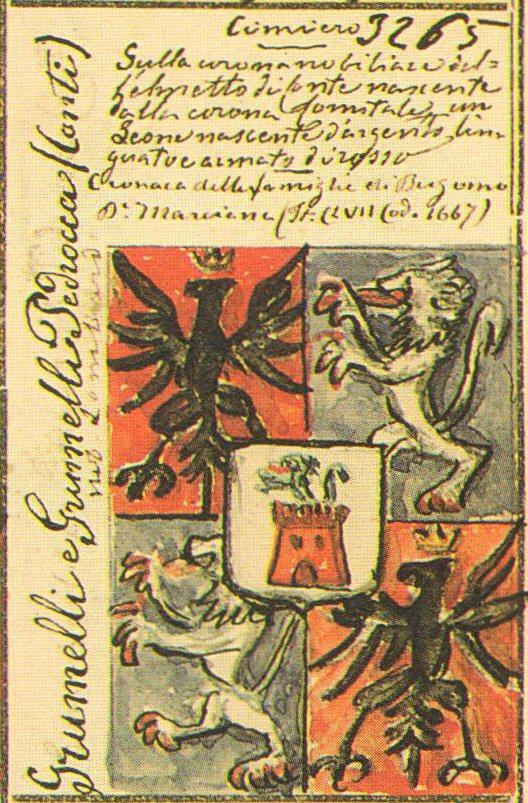 Cimiero 3265
Sulla corona nobiliare del=
l'elmetto di fonte nascente
dalla corona Comitale un
Leone nascente d'argento, lin
guato e armato di rosso
Cronaca delle famiglie di Bergamo
Marciana (It. Cl VII Cod. 1667)
Grumelli e Grumelli Pedrocca (Conti)